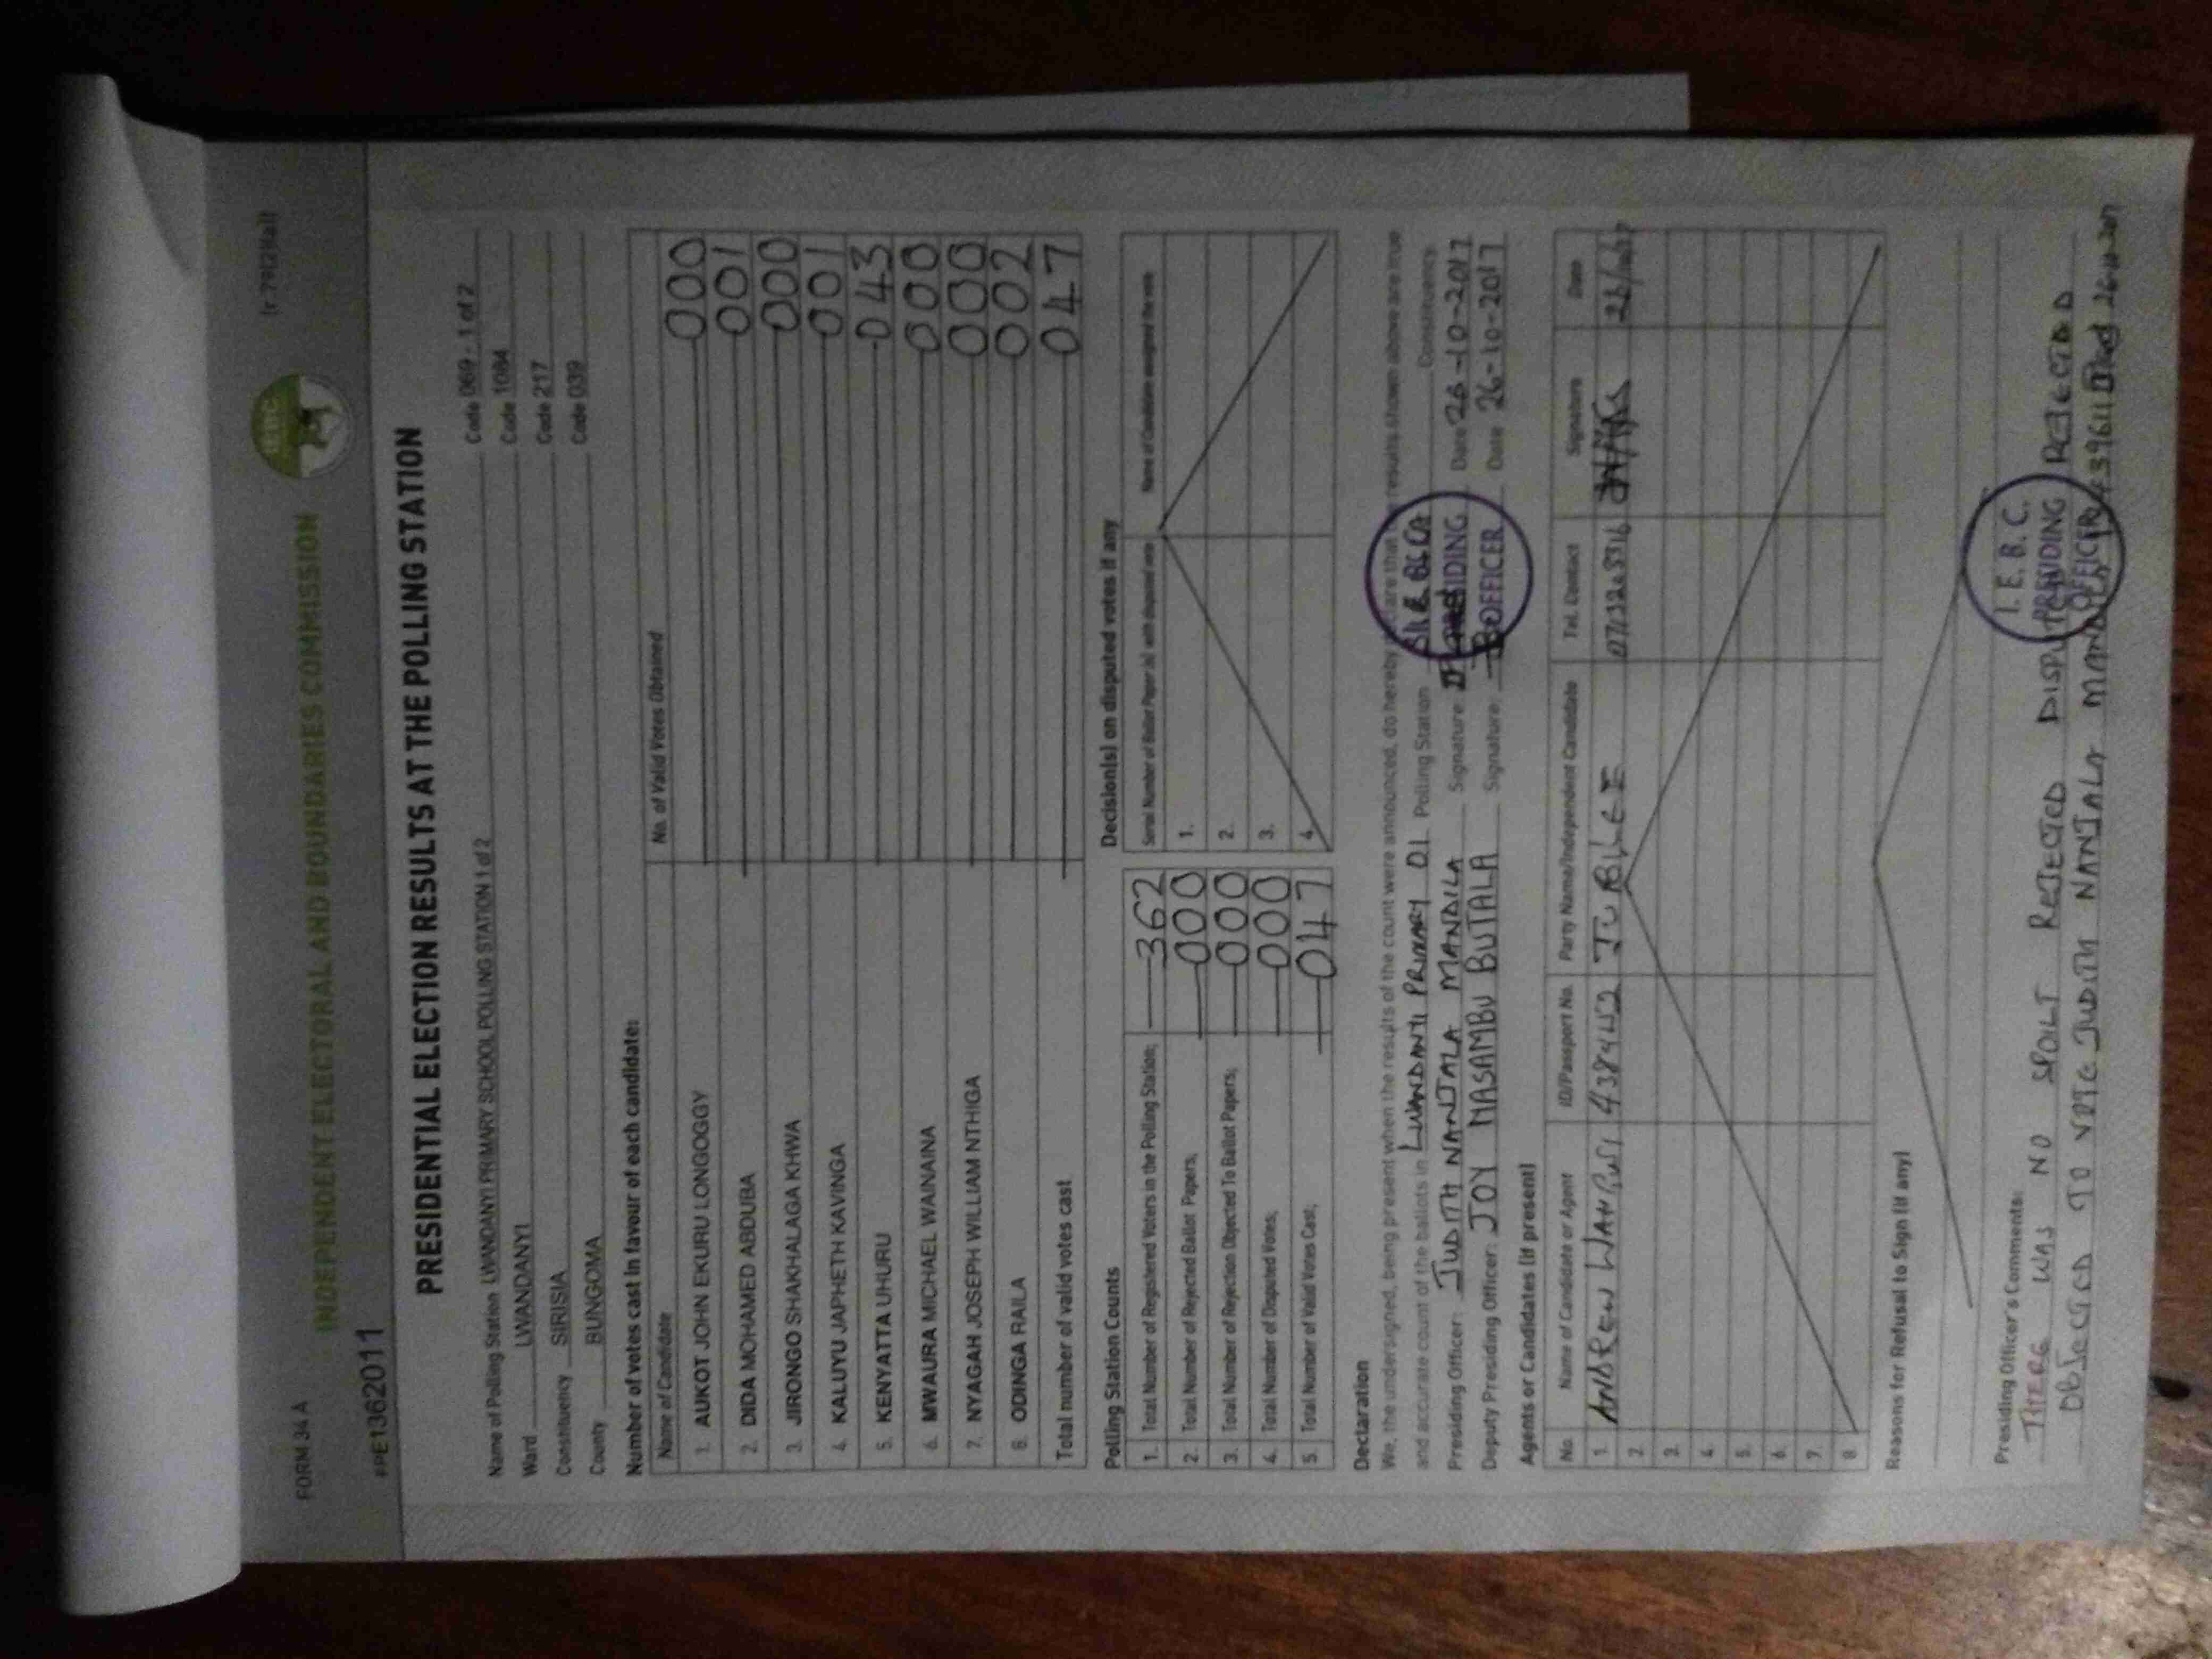 FORM 34 A
(r 79(2)(a))
INDEPENDENT ELECTORAL AND BOUNDARIES COMMISSION
IEBC
#PE1362011
PRESIDENTIAL ELECTION RESULTS AT THE POLLING STATION
Name of Polling Station LWANDANYI PRIMARY SCHOOL POLLING STATION 1 of 2 Code 069 . 1 of 2
Ward LWANDANYI Code 1084
Constituency SIRISIA Code 217
County BUNGOMA Code 039
Number of votes cast in favour of each candidate:
Name of Candidate No. of Valid Votes Obtained
1. AUKOT JOHN EKURU LONGOGGY 000
2. DIDA MOHAMED ABDUBA 001
3. JIRONGO SHAKHALAGA KHWA 000
4. KALUYU JAPHETH KAVINGA 001
5. KENYATTA UHURU 043
6. MWAURA MICHAEL WAINAINA 000
7. NYAGAH JOSEPH WILLIAM NTHIGA 000
8. ODINGA RAILA 002
Total number of valid votes cast 047
Polling Station Counts
1. Total Number of Registered Voters in the Polling Station; 362
2. Total Number of Rejected Ballot Papers; 000
3. Total Number of Rejection Objected To Ballot Papers; 000
4. Total Number of Disputed Votes; 000
5. Total Number of Valid Votes Cast; 047
Decision(s) on disputed votes if any
Serial Number of Ballot Paper (s) with disputed vote Name of Candidate assigned the vote
1.
2.
3.
4.
Declaration
We, the undersigned, being present when the results of the count were announced, do hereby declare that the results shown above are true
and accurate count of the ballots in LWANDANYI PRIMARY 01 Polling Station Constituency.
Presiding Officer: JUDITH NANJALA MANDILA Signature: Date 26-10-2017
Deputy Presiding Officer: JOY MASAMBU BUTALA Signature: Date 26-10-2017
PRESIDING
OFFICER
Agents or Candidates (if present)
No. Name of Candidate or Agent ID/Passport No. Party Name/Independent Candidate Tel. Contact Signature Date
1. ANDREW 4384442 JUBILEE
2.
3.
4.
5.
6.
7.
8.
Reasons for Refusal to Sign (if any)
Presiding Officer's Comments:
THERE WAS NO SPOILT REJECTED REJECTED
OBJECTED TO VOTE JUDITH NANJALA
I. E. B. C.
PRESIDING
OFFICER